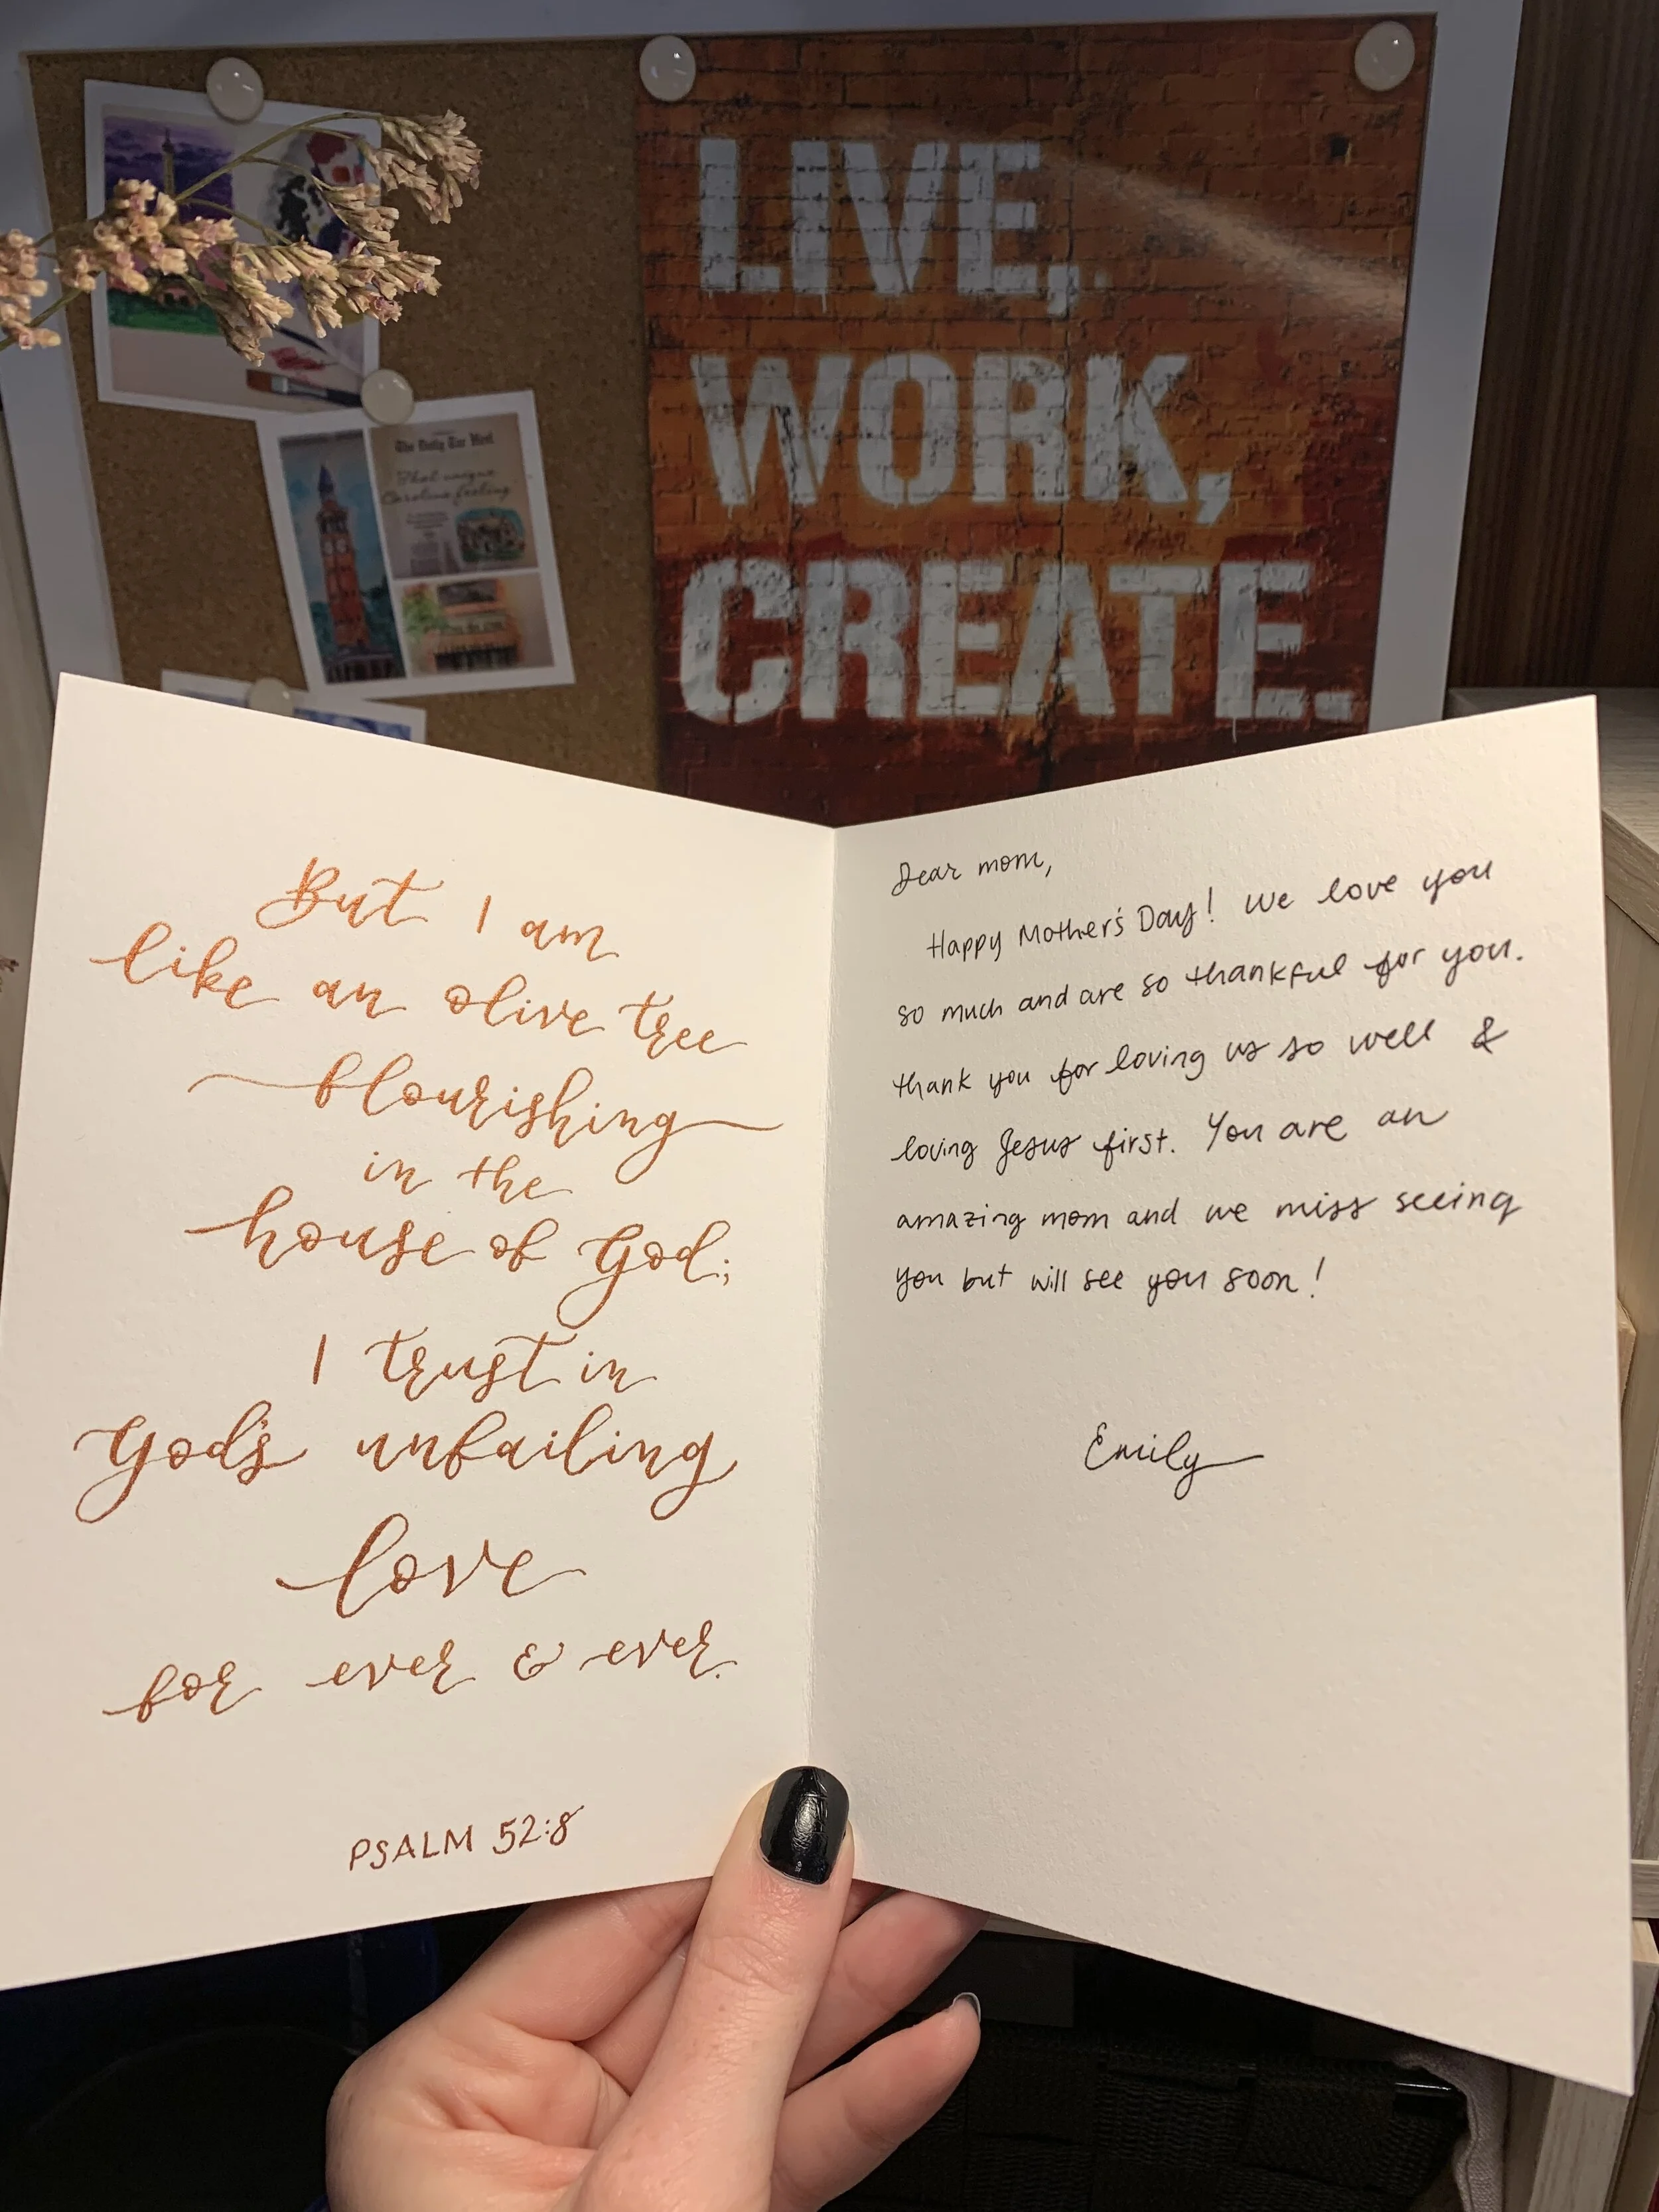 LIVE,
WORK,
CREATE.
The Daily Tar Heel
That unique
Carolina feeling
But I am
like an olive tree
flourishing
in the
house of God;
I trust in
God's unfailing
love
for ever & ever.
PSALM 52:8
Dear mom,
Happy Mother's Day! We love you
so much and are so thankful for you.
thank you for loving us so well &
loving Jesus first. You are an
amazing mom and we miss seeing
you but will see you soon!
Emily